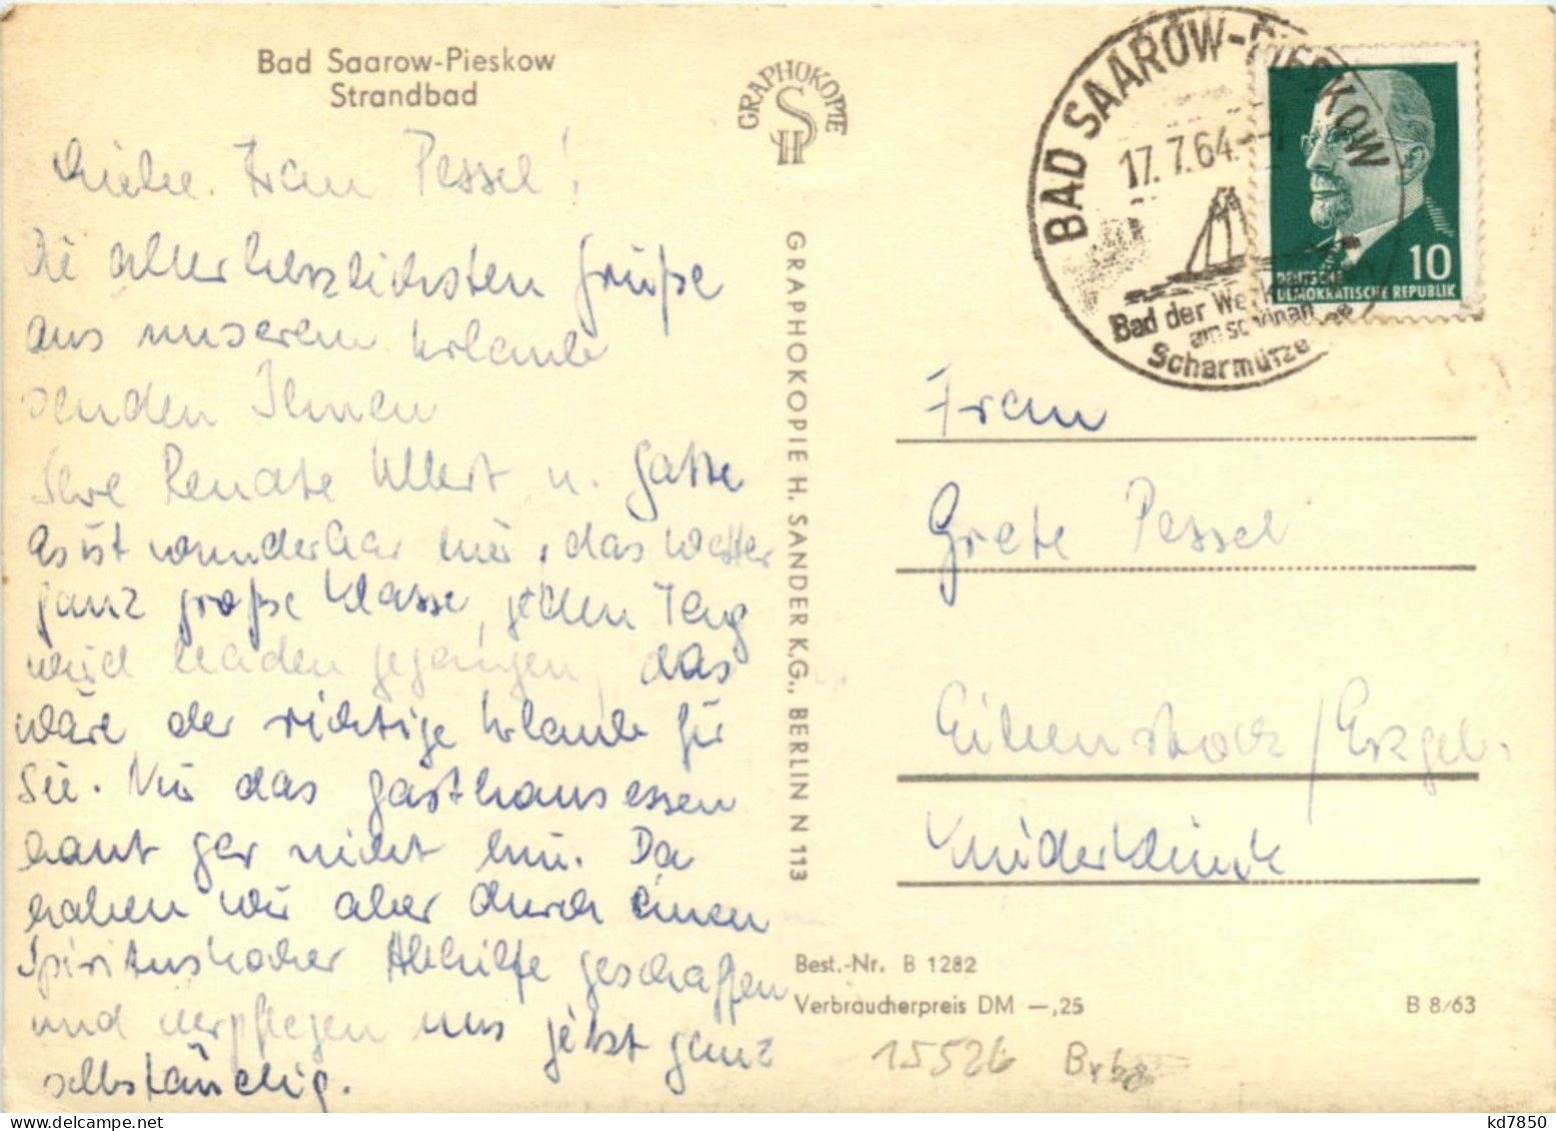 Bad Saarow-Pieskow
Strandbad
Liebe Frau Pessel!
Die allerherzlichsten Grüße
aus unserem Urlaub
senden Ihnen
Ihre Renate Ullert u. Gatte
Es ist wunderbar hier, das Wetter
ganz große Klasse, jeden Tag
wird baden gegangen, das
wäre der richtige Urlaub für
Sie. Nur das Gasthausessen
haut gar nicht hin. Da
haben wir aber durch einen
Spirituskocher Abhilfe geschaffen
und verpflegen uns jetzt ganz
selbständig.
GRAPHOKOPIE
H S
GRAPHOKOPIE H. SANDER K.G., BERLIN N 113
BAD SAAROW-PIESKOW
17.7.64.
Bad der
am schönen
Scharmützelsee
10
DEUTSCHE
DEMOKRATISCHE REPUBLIK
Frau
Grete Pessel
Eibenstock/Erzgeb.
Kinderklinik
Best.-Nr. B 1282
Verbraucherpreis DM —,25
B 8/63
15526 Brbg
www.delcampe.net
kd7850